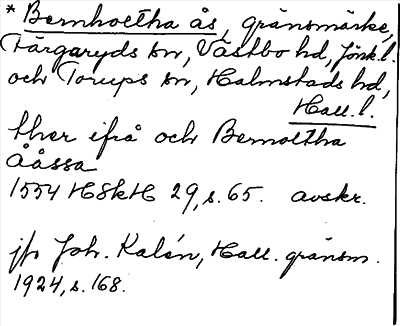 * Bernholtha ås, gränsmärke,
Färgaryds sn, Västbo hd, Jönk. l.
och Torups sn, Halmstads hd,
Hall. l.
ther ifrå och Bernoltha
ååssa
1554 HSkH 29, s. 65. avskr.
jfr Joh. Kalén, Hall. gränsm.
1924, s. 168.